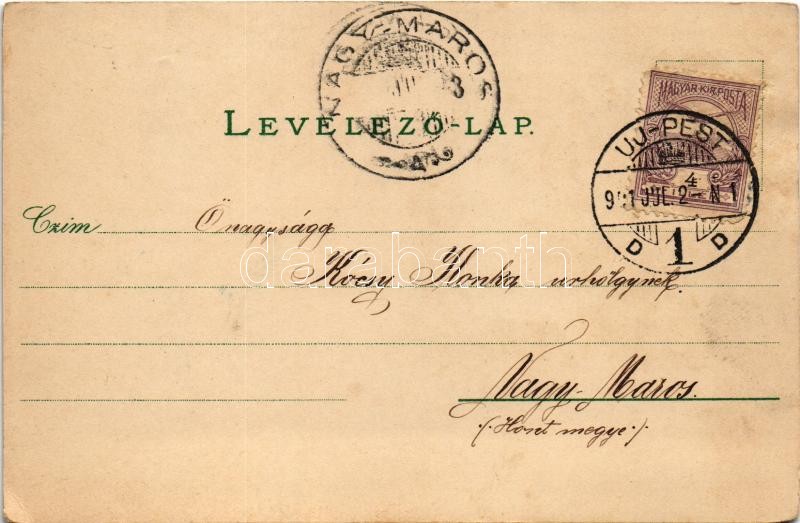 NAGY-MAROS
3
MAGYAR KIR. POSTA
LEVELEZŐ-LAP.
UJ-PEST
4
901 JUL 2 N 1
D 1 D
Czim Őnagysága
darabanth
Kócsy Ilonka urhölgynek.
Nagy-Maros.
(Hont megye.)